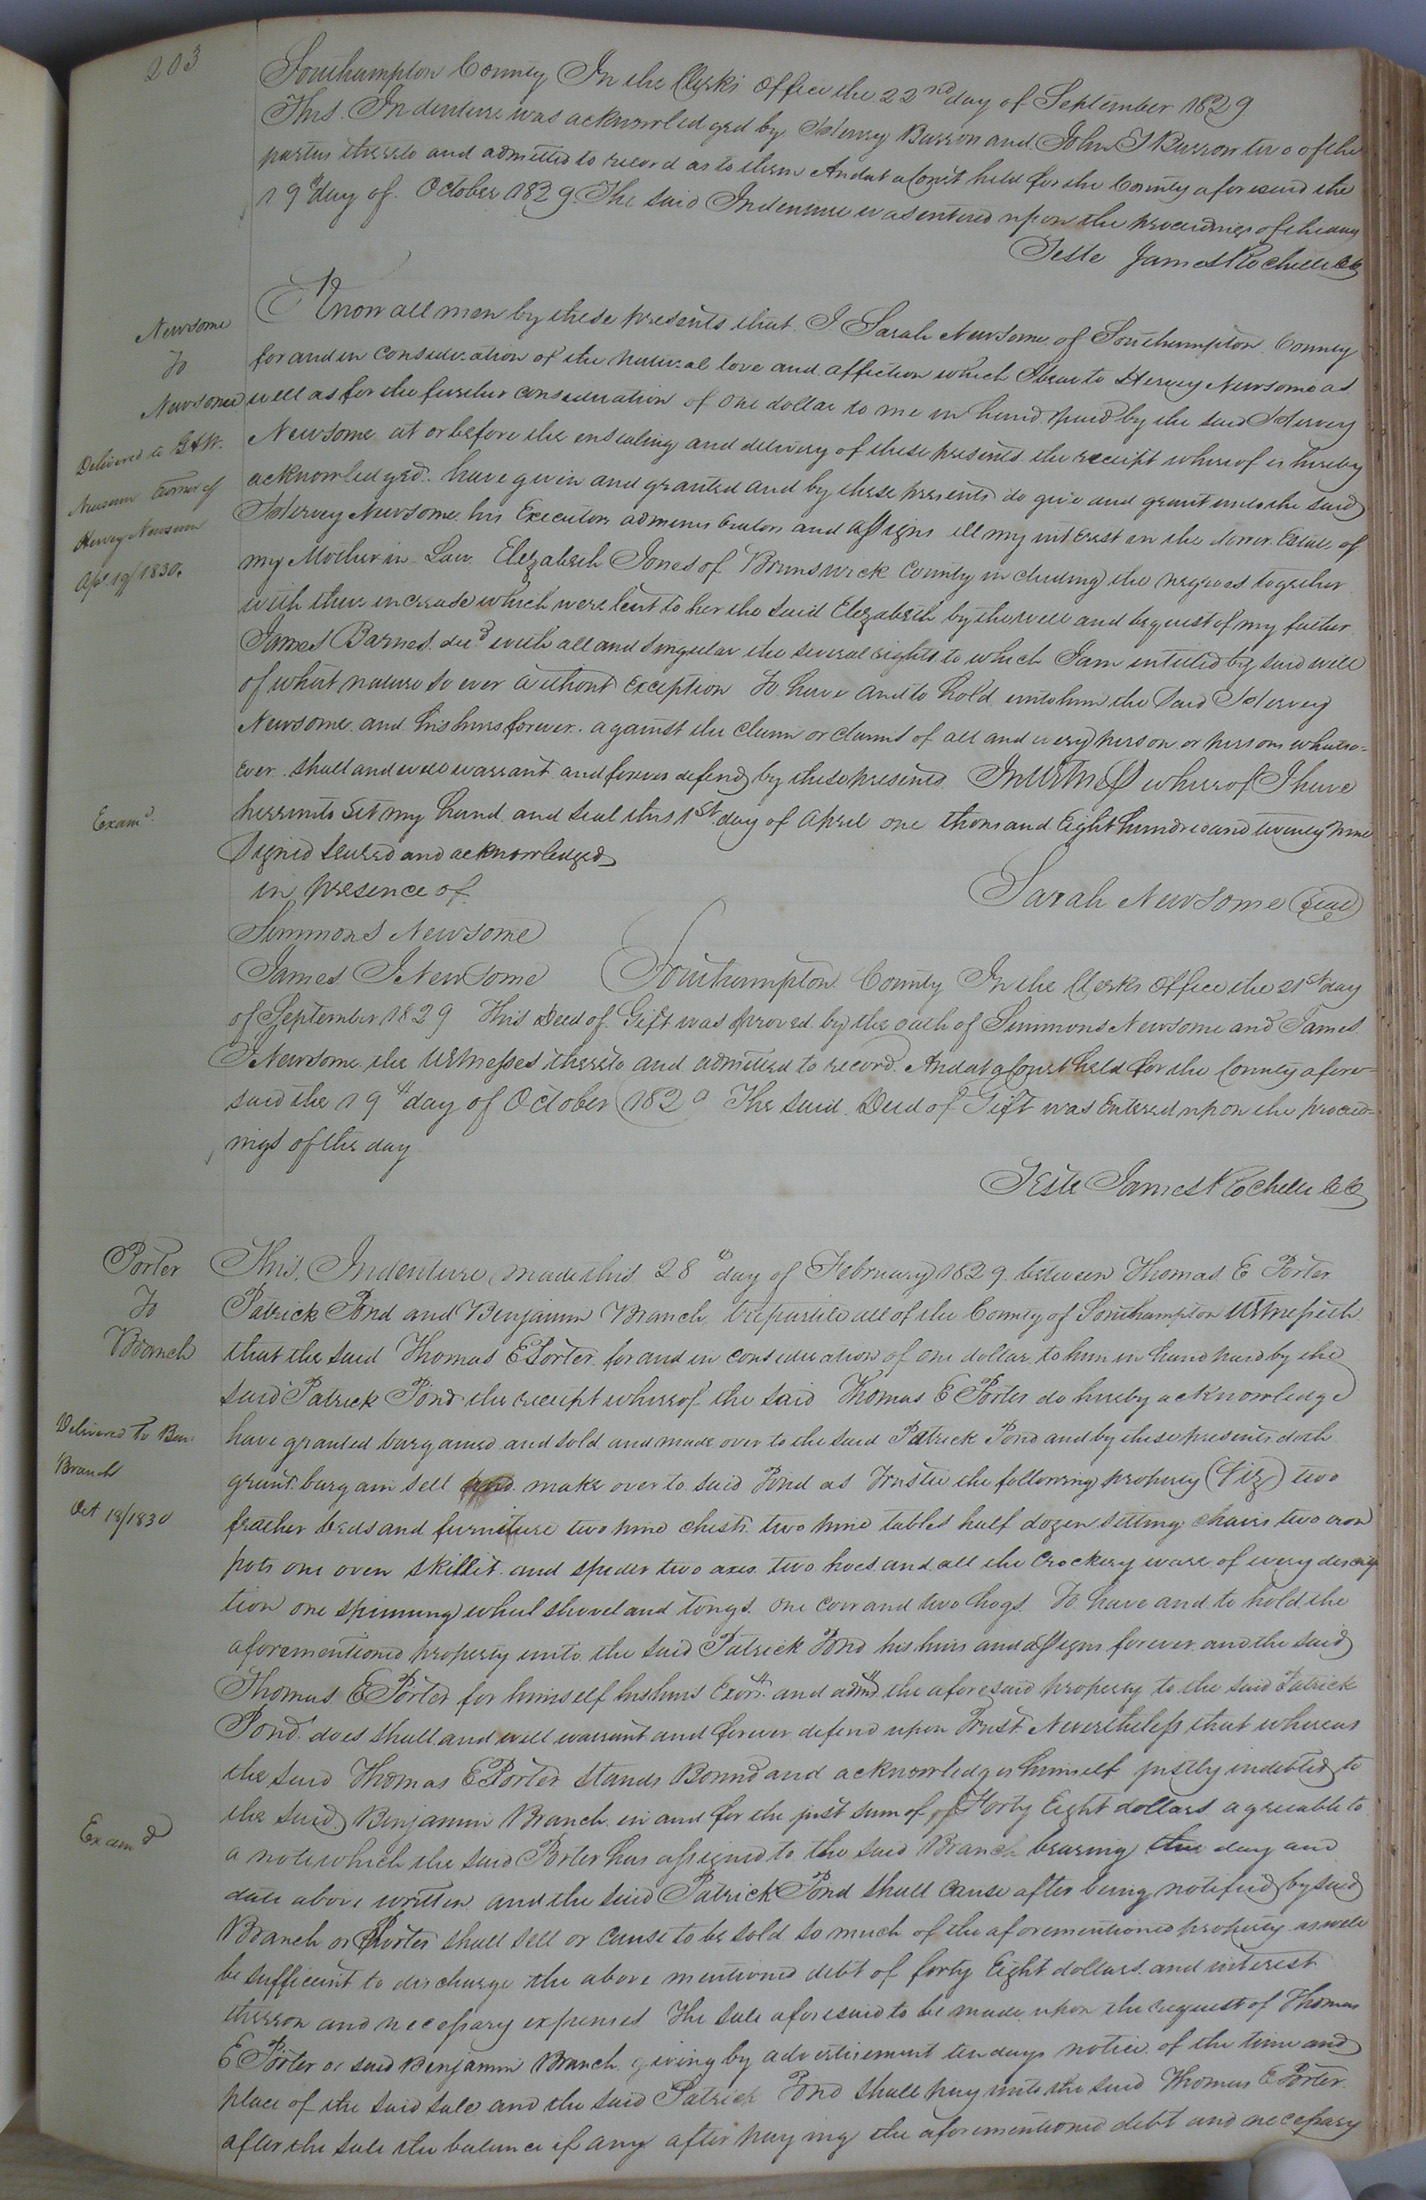 203
Southampton County In the Clerk's Office the 22nd day of September 1829
This Indenture was acknowledged by Henry Barron and John T Barron two of the
parties thereto and admitted to record as to them And at a Court held for the County aforesaid the
19th day of October 1829 The said Indenture was entered upon the proceedings of the day
Teste James Rochelle CC
Newsome
To
Newsome
Delivered to
Newsom
Hervey Newsom
Apl 19/1830.
Know all men by these presents that I Sarah Newsome of Southampton County
for and in consideration of the natural love and affection which I bear to Hervey Newsome as
well as for the further consideration of one dollar to me in hand paid by the said Hervey
Newsome at or before the ensealing and delivery of these presents the receipt whereof is hereby
acknowledged have given and granted and by these presents do give and grant unto the said
Hervey Newsome his Executors administrators and assigns all my interest in the dower Estate of
my Mother in Law Elizabeth Jones of Brunswick County including the negroes together
with their increase which were lent to her the said Elizabeth by the will and bequest of my father
James Barnes decd with all and singular the several rights to which I am intitled by said will
of what nature so ever without exception To have and to hold unto him the said Hervey
Newsome and his heirs forever against the claim or claims of all and every person or persons whatso=
ever shall and will warrant and forever defend by these presents In Witness whereof I have
Examd.
hereunto set my hand and seal this 1st day of April one thousand Eight hundred and twenty nine
Signed sealed and acknowledged
in presence of
Sarah Newsome (Seal)
Simmons Newsome
James J Newsome
Southampton County In the Clerks Office the 21st day
of September 1829 This Deed of Gift was proved by the oath of Simmons Newsome and James
J Newsome the Witnesses thereto and admitted to record And at a Court held for the County afore-
said the 19th day of October 1829 The said Deed of Gift was Entered upon the proceed=
ings of the day
Teste James Rochelle CC
Porter
To
Branch
Delivered to Ben.
Branch
Oct 18/1830
This Indenture made this 28th day of February 1829 between Thomas E Porter
Patrick Pond and Benjamin Branch tripartite all of the County of Southampton Witnesseth
that the said Thomas E Porter for and in consideration of one dollar to him in hand paid by the
said Patrick Pond the receipt whereof the said Thomas E Porter do hereby acknowledge
have granted bargained and sold and made over to the said Patrick Pond and by these presents doth
grant bargain sell and make over to said Pond as Trustee the following property (Viz) two
feather beds and furniture two pine chests two pine tables half dozen sitting chairs two iron
pots one oven skillit and spider two axes two hoes and all the Crockery ware of every descrip
tion one spinning wheel shovel and tongs one cow and two hogs To have and to hold the
aforementioned property unto the said Patrick Pond his heirs and assigns forever and the said
Thomas E Porter for himself his heirs Exors and admrs the aforesaid property to the said Patrick
Pond does shall and will warrant and forever defend upon Trust Nevertheless that whereas
the said Thomas E Porter stands Bound and acknowledges himself justly indebted to
the said Benjamin Branch in and for the just sum of of Forty Eight dollars agreeable to
Examd
a note which the said Porter has assigned to the said Branch bearing the day and
date above written and the said Patrick Pond shall cause after being notified by said
Branch or Porter shall sell or cause to be sold so much of the aforementioned property as will
be sufficient to discharge the above mentioned debt of forty Eight dollars and interest
thereon and necessary expenses The sale aforesaid to be made upon the request of Thomas
E Porter or said Benjamin Branch giving by advertisement ten days notice of the time and
place of the said sale and the said Patrick Pond shall pay unto the said Thomas E Porter
after the sale the balance if any after paying the aforementioned debt and necessary